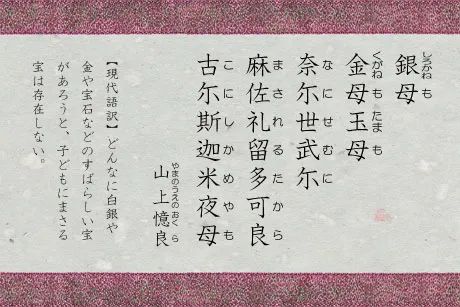 しろかね も
銀母
くがね も たま も
金母玉母
なにせむに
奈尓世武尓
まされるたから
麻佐礼留多可良
こにしかめやも
古尓斯迦米夜母
やまのうえのおくら
山上憶良
【現代語訳】どんなに白銀や
金や宝石などのすばらしい宝
があろうと、子どもにまさる
宝は存在しない。